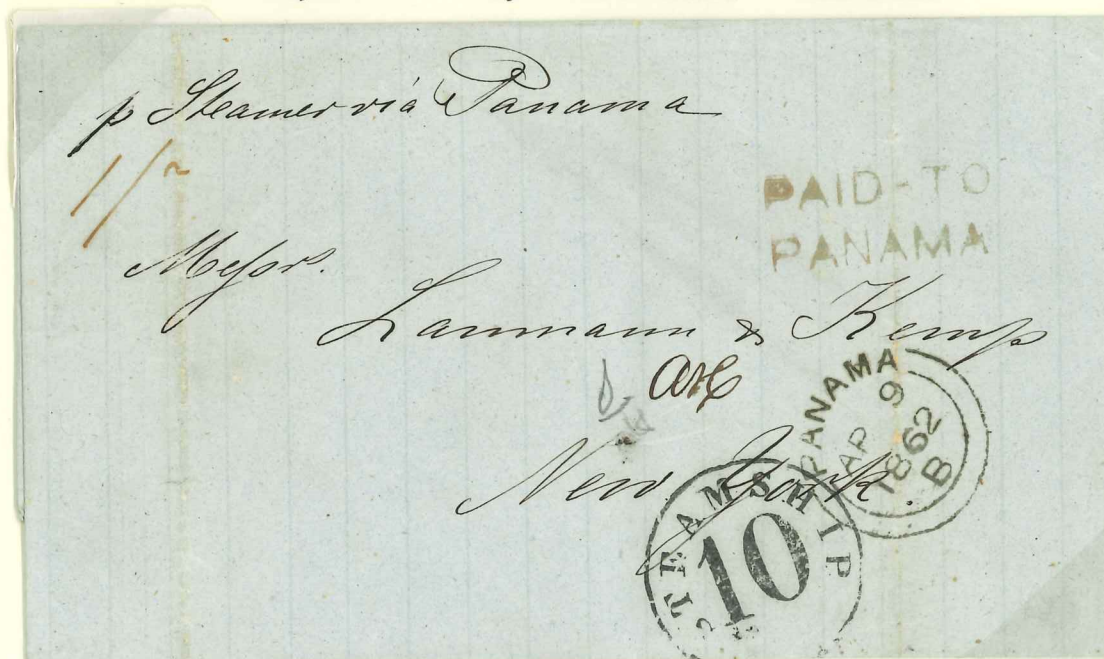 p Steamer viá Panama
1/-
PAID-TO
PANAMA
Messrs.
Lanmann & Kemp
New York.
PANAMA
AP 9
1862
B
STEAMSHIP
10